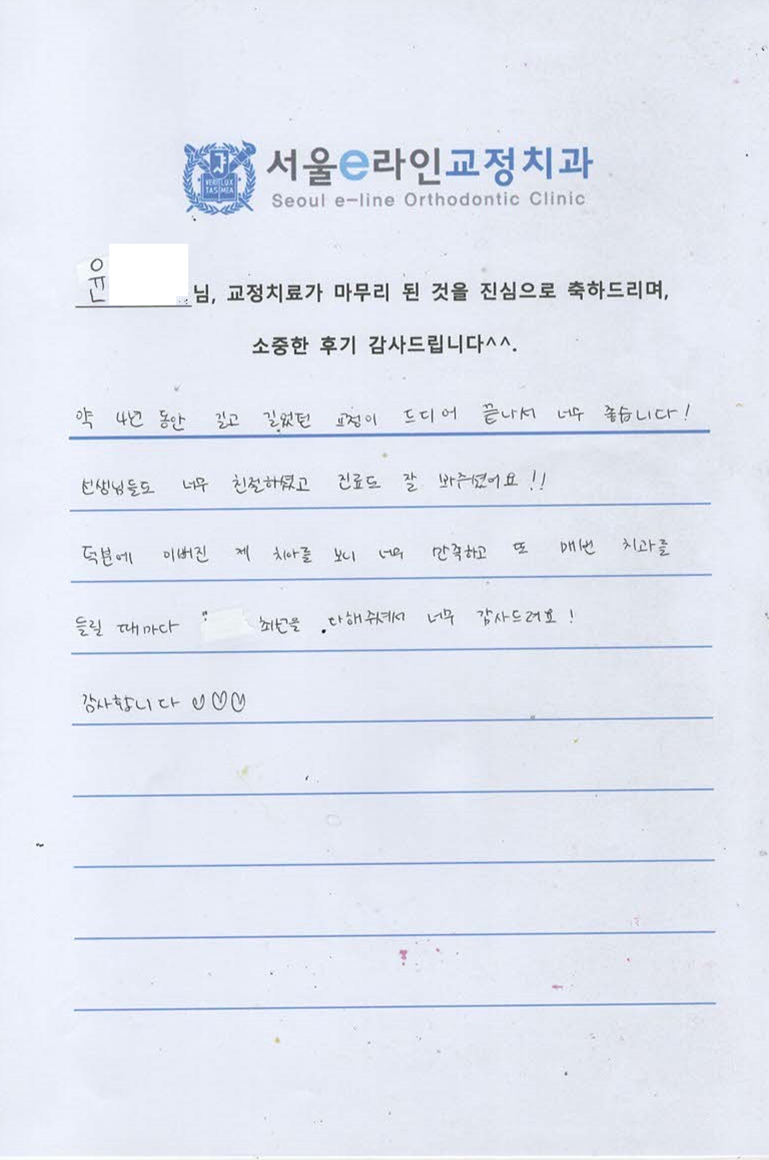 VERI LUX TAS MEA
서울e라인교정치과
Seoul e-line Orthodontic Clinic
윤 님, 교정치료가 마무리 된 것을 진심으로 축하드리며,
소중한 후기 감사드립니다^^.
약 4년 동안 길고 길었던 교정이 드디어 끝나서 너무 좋습니다!
선생님들도 너무 친절하셨고 진료도 잘 봐주셨어요!!
덕분에 이뻐진 제 치아를 보니 너무 만족하고 또 매번 치과를
들릴 때마다 최선을 다해주셔서 너무 감사드려요!
감사합니다 ♡♡♡